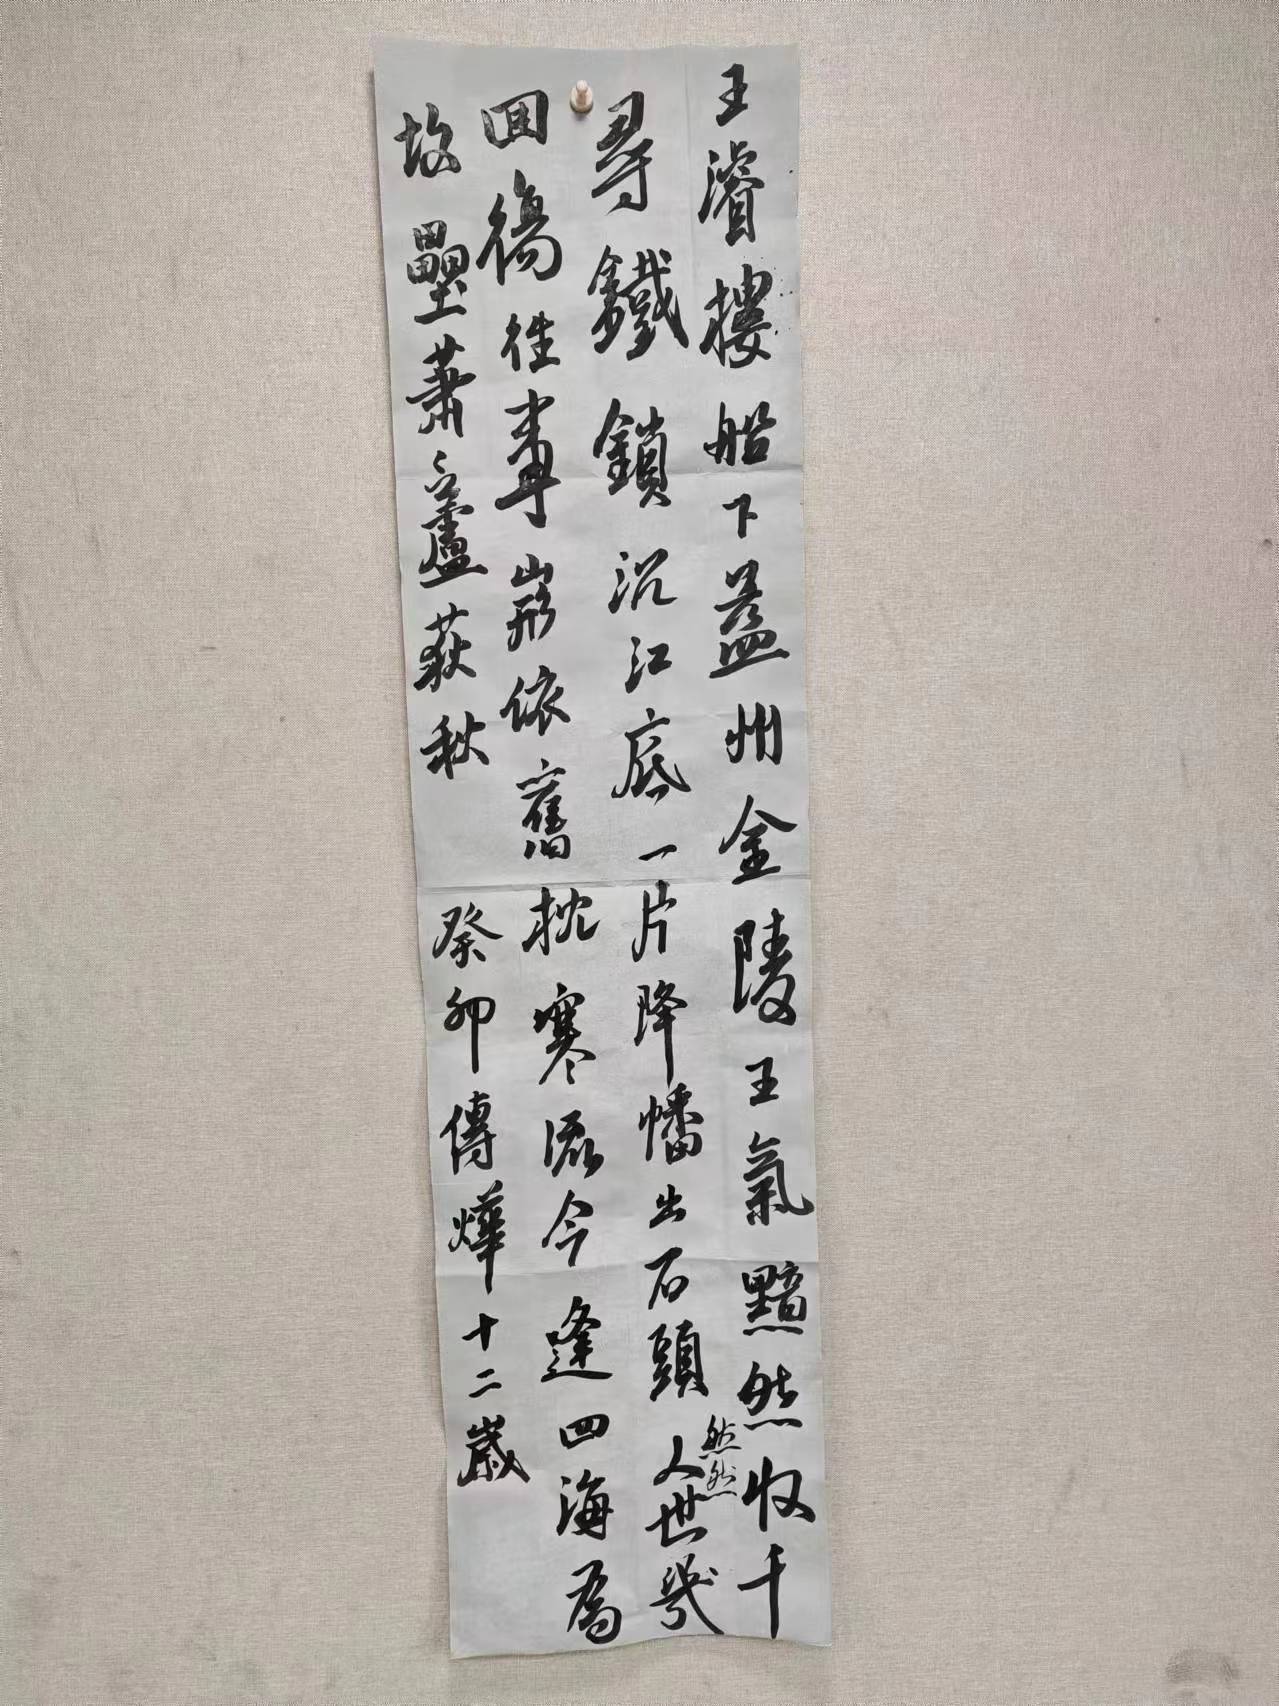 王濬樓船下益州金陵王氣黯然收千
然然
尋鐵鎖沉江底一片降幡出石頭人世幾
回傷往事山形依舊枕寒流今逢四海為
故壘蕭〻蘆荻秋
癸卯傳燁十二歲